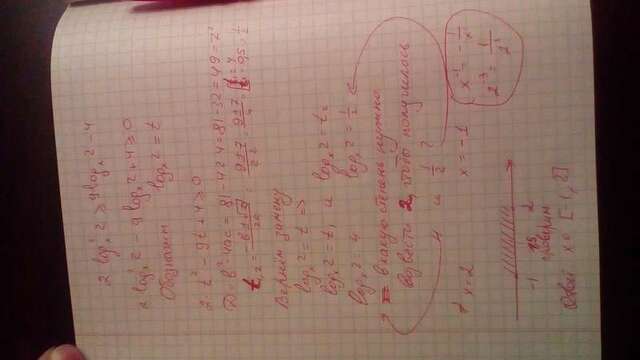 2 log²ₓ 2 ≥ 9 logₓ 2 - 4
2 log²ₓ 2 - 9 logₓ 2 + 4 ≥ 0
Обозначим logₓ 2 = t
2·t² - 9t + 4 ≥ 0
D = b² - 4ac = 81 - 4·2·4 = 81 - 32 = 49 = 7²
t₁,₂ = (-b ± √D)/2a = (9 ± 7)/2·2 = (9 ± 7)/4
Вернем замену
logₓ 2 = t =>
logₓ 2 = t₁ и logₓ 2 = t₂
logₓ 2 = 4 logₓ 2 = 1/2
в какую степень нужно
возвести 2, чтобы получилось
4 и 1/2 ?
x = 2 x = -1
x⁻¹ = -1/x
2⁻³ = 1/2³
-1 2
проверим
Ответ x ∈ [-1, 2]